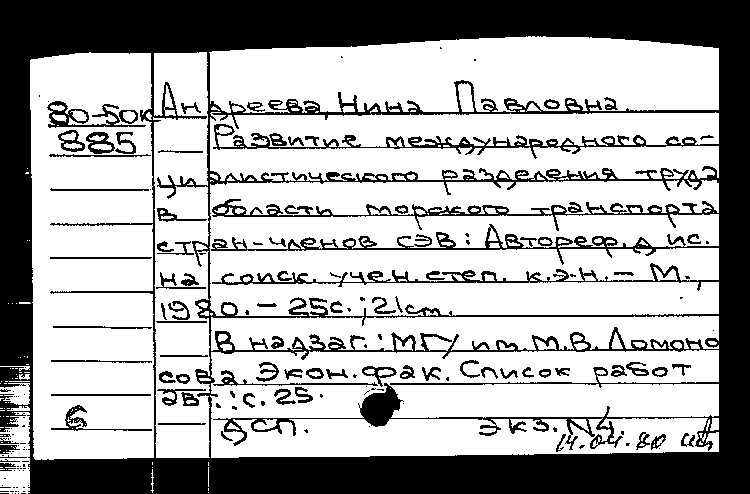 80-50к Андреева, Нина Павловна.
885 Развитие международного со-
циалистического разделения труда
в области морского транспорта
стран-членов СЭВ: Автореф. дис.
на соиск. учен. степ. к.э.н. – М.,
1980. – 25с.; 21см.
В надзаг.: МГУ им. М.В. Ломоно
сова. Экон. фак. Список работ
авт.: с. 25.
6 ДСП. экз. N4
14.04.80